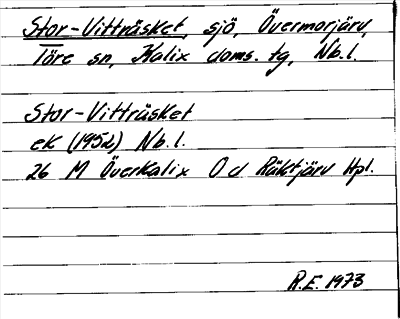 Stor-Vitträsket, sjö, Övermorjärv,
Töre sn, Kalix doms. tg, Nb.l.
Stor-Vitträsket
ek (1952) Nb.l.
26 M Överkalix O d Räktjärv Hpl.
R.E. 1973